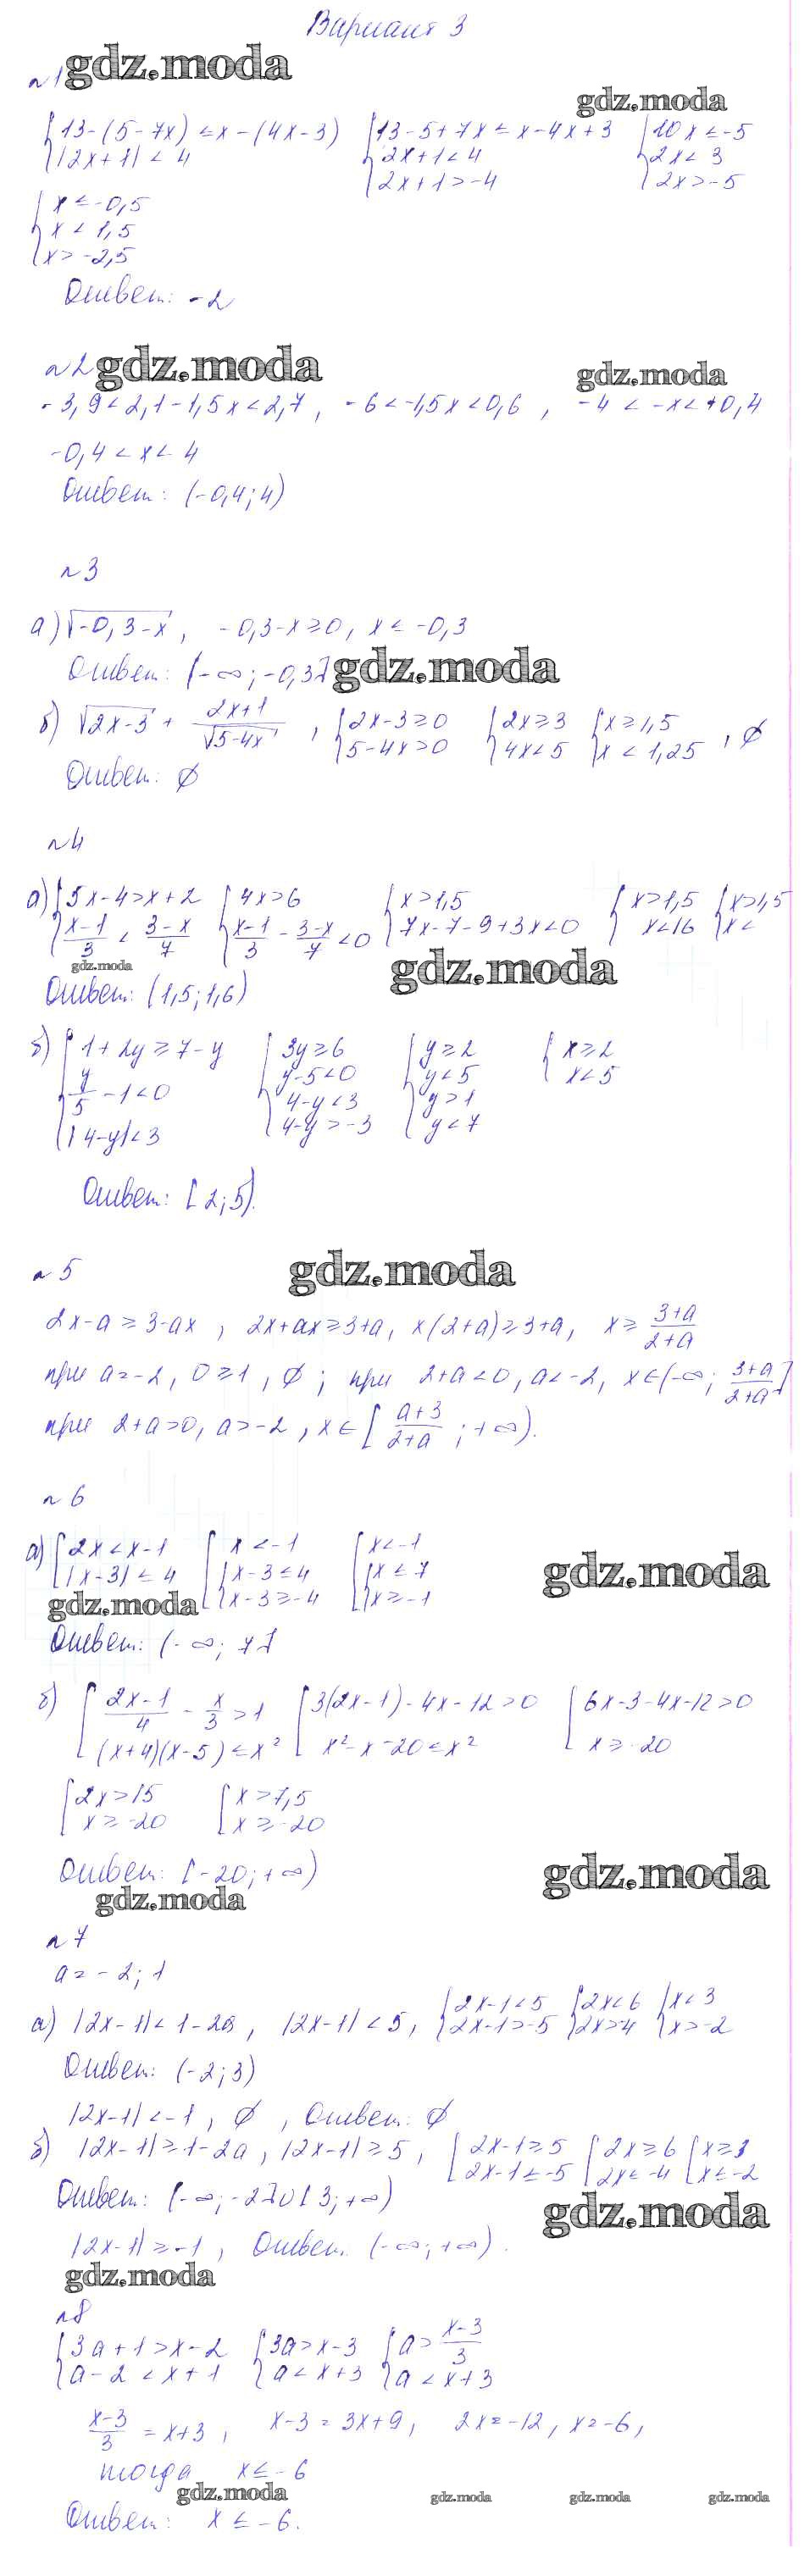 Вариант 3
№1 gdz.moda
gdz.moda
{13-(5-7x) ≤ x-(4x-3) {13-5+7x ≤ x-4x+3 {10x ≤ -5
|2x+1| < 4 2x+1 < 4 2x < 3
2x+1 > -4 2x > -5
{x ≤ -0,5
x < 1,5
x > -2,5
Ответ: -2
№2 gdz.moda gdz.moda
-3,9 < 2,1-1,5x < 2,7, -6 < -1,5x < 0,6, -4 < -x < +0,4
-0,4 < x < 4
Ответ: (-0,4; 4)
№3
а) √-0,3-x, -0,3-x ≥ 0, x ≤ -0,3
Ответ: (-∞; -0,3] gdz.moda
б) √2x-3 + 2x+1/√5-4x, {2x-3 ≥ 0 {2x ≥ 3 {x ≥ 1,5
5-4x > 0 4x < 5 x < 1,25, ∅
Ответ: ∅
№4
а) {5x-4 > x+2 {4x > 6 {x > 1,5 {x > 1,5 {x > 1,5
x-1/3 < 3-x/7 x-1/3 - 3-x/7 < 0 7x-7-9+3x < 0 x < 16 x <
gdz.moda gdz.moda
Ответ: (1,5; 1,6)
б) {1+2y ≥ 7-y {3y ≥ 6 {y ≥ 2 {x ≥ 2
y/5 - 1 < 0 y-5 < 0 y < 5 x < 5
|4-y| < 3 4-y < 3 y > 1
4-y > -3 y < 7
Ответ: [2; 5).
№5 gdz.moda
2x-a ≥ 3-ax, 2x+ax ≥ 3+a, x(2+a) ≥ 3+a, x ≥ 3+a/2+a
при a = -2, 0 ≥ 1, ∅; при 2+a < 0, a < -2, x ∈ (-∞; 3+a/2+a]
при 2+a > 0, a > -2, x ∈ [a+3/2+a; +∞).
№6
а) [2x < x-1 [x < -1 [x < -1
|x-3| ≤ 4 {x-3 ≤ 4 {x ≤ 7
x-3 ≥ -4 x ≥ -1
gdz.moda
gdz.moda
Ответ: (-∞; 7]
б) [2x-1/4 - x/3 > 1 [3(2x-1)-4x-12 > 0 [6x-3-4x-12 > 0
(x+4)(x-5) ≤ x² x²-x-20 ≤ x² x ≥ -20
[2x > 15 [x > 7,5
x ≥ -20 x ≥ -20
Ответ: [-20; +∞) gdz.moda
gdz.moda
№7
a = -2; 1
а) |2x-1| < 1-2a, |2x-1| < 5, {2x-1 < 5 {2x < 6 {x < 3
2x-1 > -5 2x > -4 x > -2
Ответ: (-2; 3)
|2x-1| < -1, ∅, Ответ: ∅
б) |2x-1| ≥ 1-2a, |2x-1| ≥ 5, [2x-1 ≥ 5 [2x ≥ 6 [x ≥ 3
2x-1 ≤ -5 2x ≤ -4 x ≤ -2
Ответ: (-∞; -2]∪[3; +∞) gdz.moda
|2x-1| ≥ -1, Ответ. (-∞; +∞).
gdz.moda
№8
{3a+1 > x-2 {3a > x-3 {a > x-3/3
a-2 < x+1 a < x+3 a < x+3
x-3/3 = x+3, x-3 = 3x+9, 2x = -12, x = -6,
тогда x ≤ -6
gdz.moda gdz.moda gdz.moda gdz.moda
Ответ: x ≤ -6.